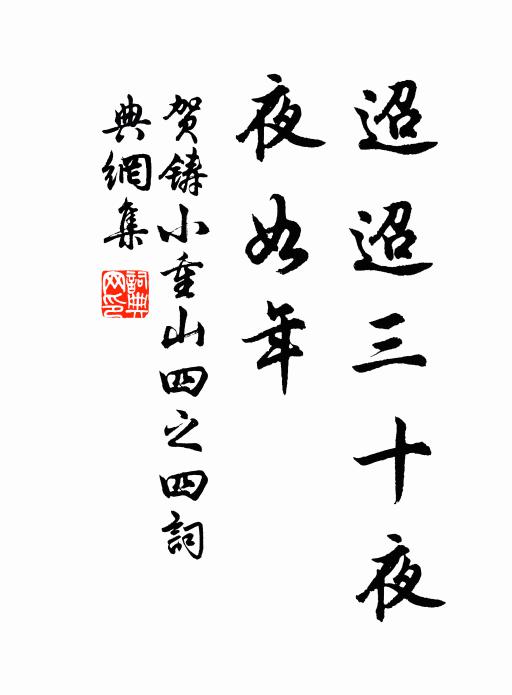 迢迢三十夜
夜如年
賀鑄小重山四之四詞
典網集
詞典網印